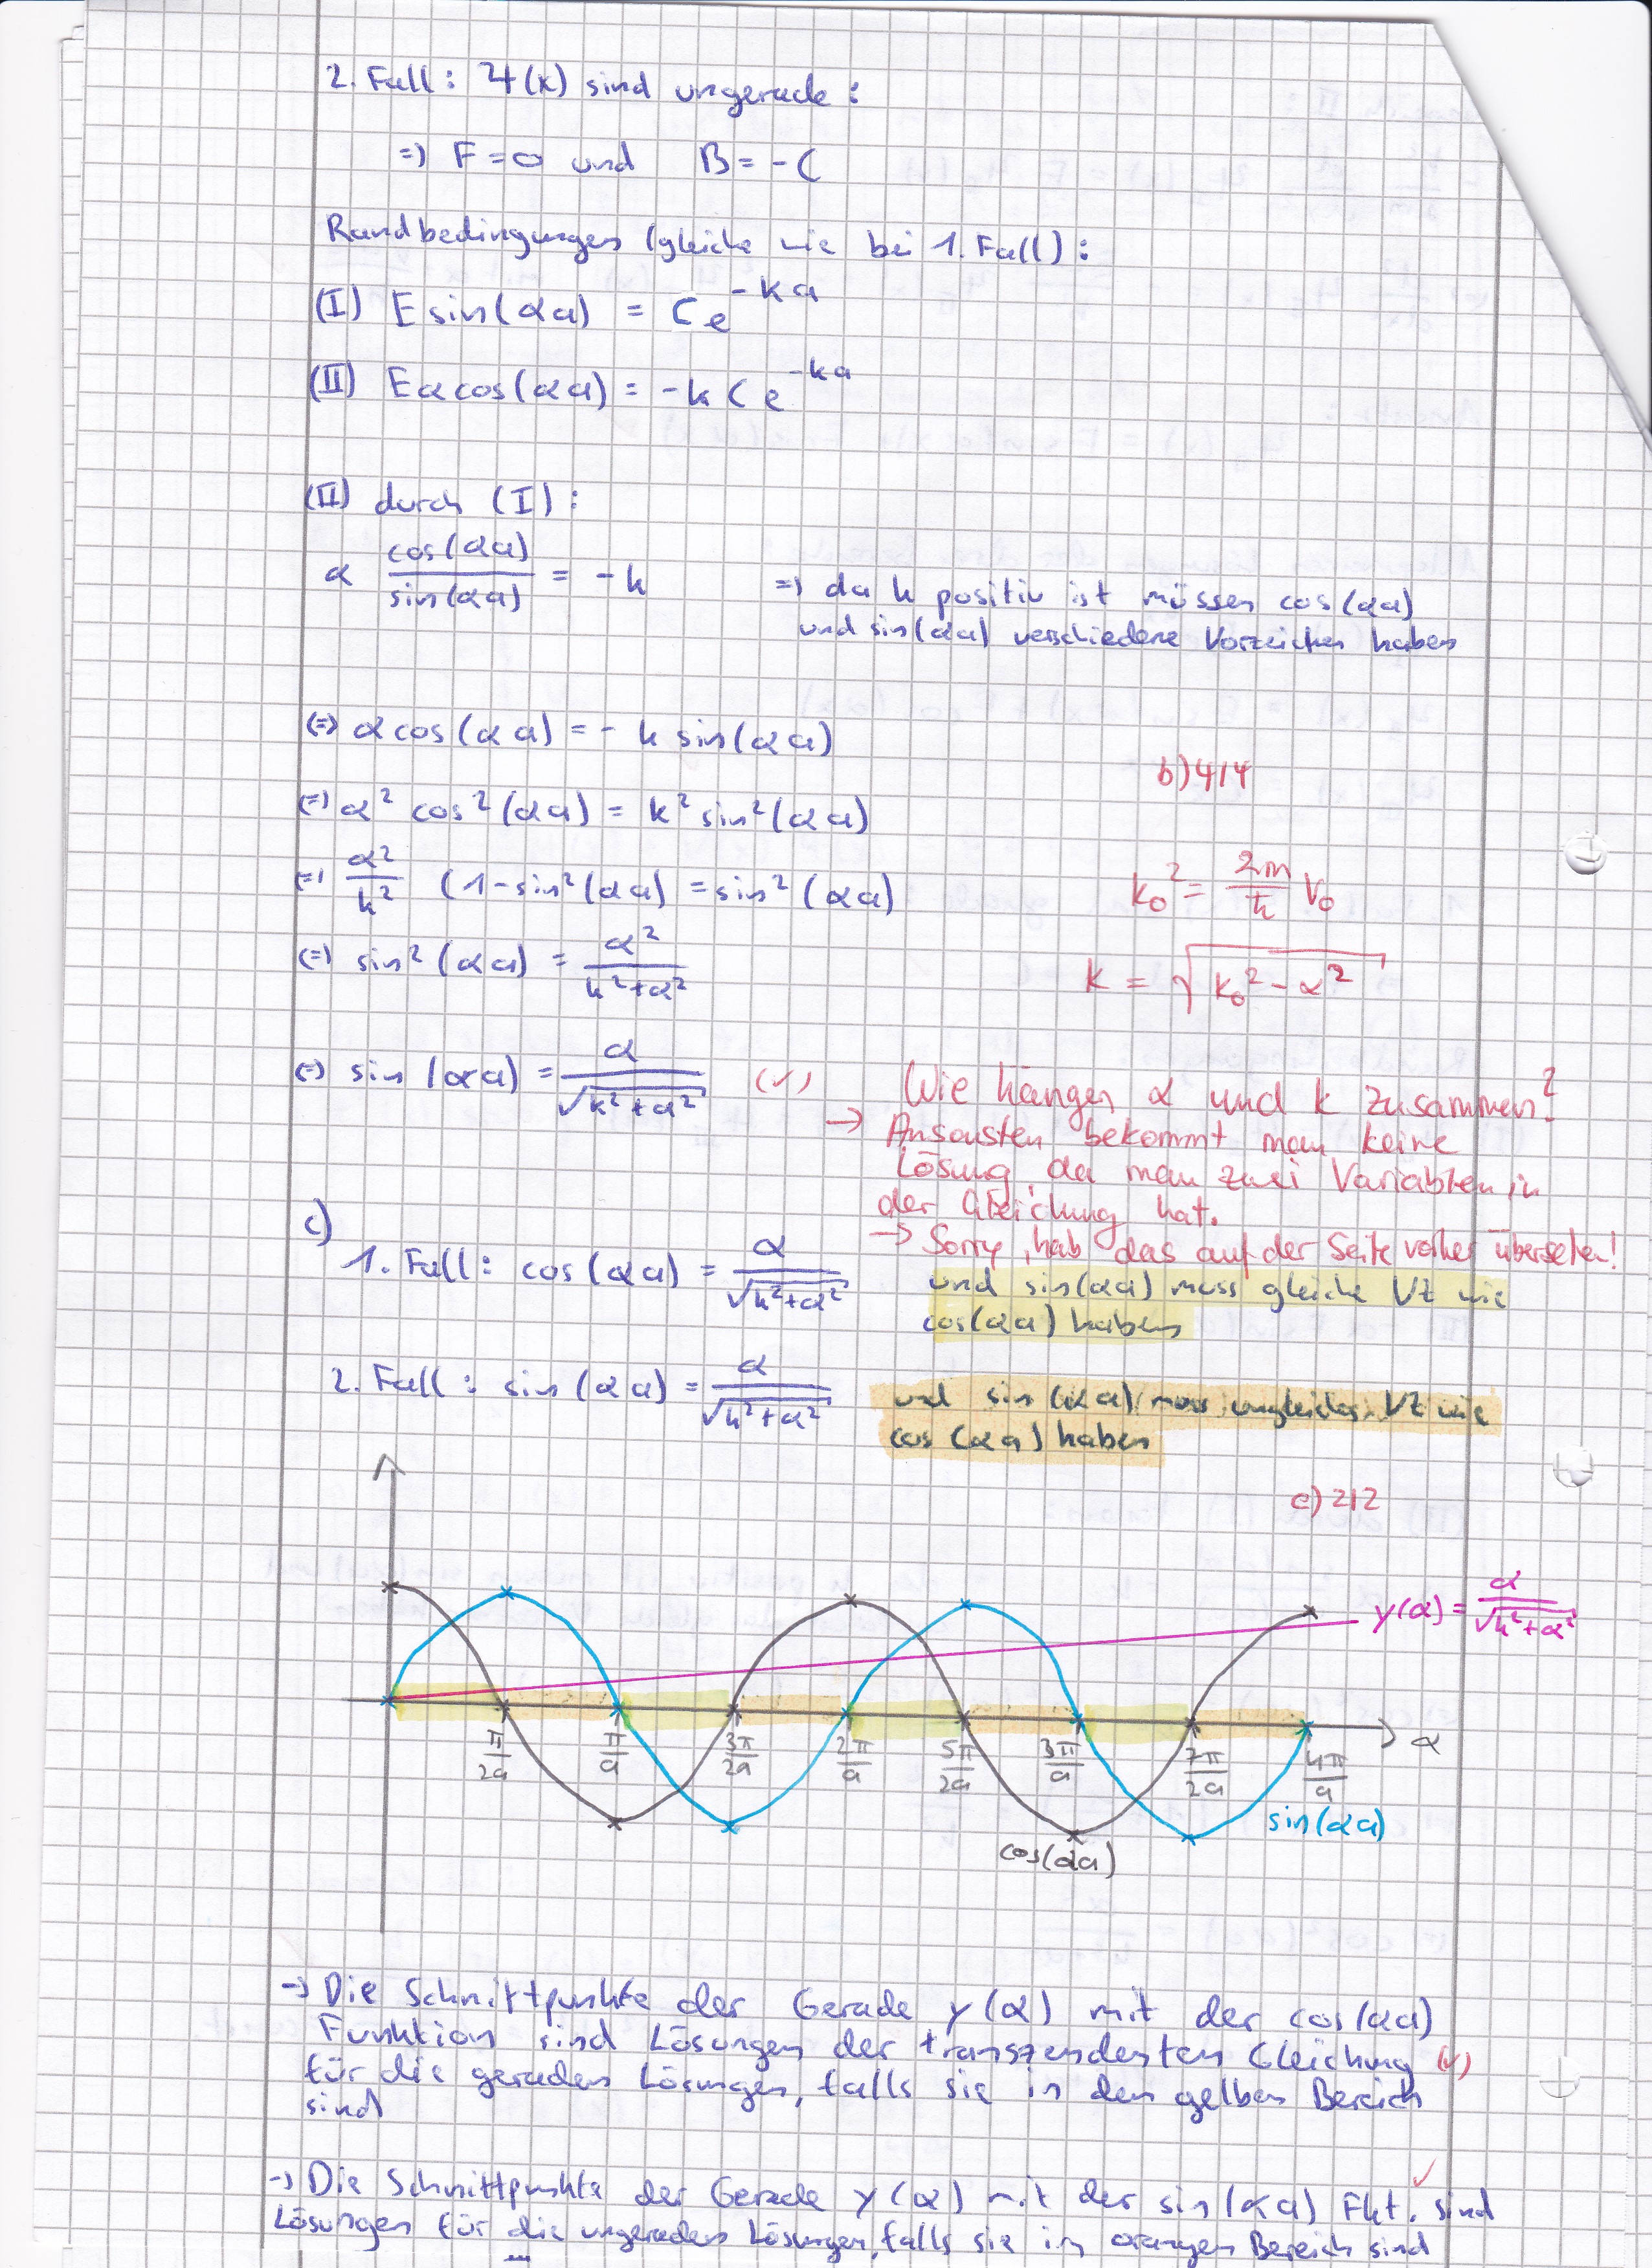 2. Fall: Ψ(x) sind ungerade:
=> F = 0 und B = - C
Randbedingungen (gleiche wie bei 1. Fall):
(I) E sin(αa) = C e^{-ka}
(II) E α cos(αa) = -k C e^{-ka}
(II) durch (I):
α cos(αa)/sin(αa) = -k => da k positiv ist müssen cos(αa)
und sin(αa) verschiedene Vorzeichen haben
(=) α cos(αa) = - k sin(αa)
b) 4/4
(=) α² cos²(αa) = k² sin²(αa)
(=) α²/k² (1 - sin²(αa) = sin²(αa)
k₀² = 2m/ħ V₀
(=) sin²(αa) = α²/(k²+α²)
k = √(k₀² - α²)
(=) sin(αa) = α/√(k²+α²) (✓)
Wie hängen α und k zusammen?
→ Ansonsten bekommt man keine
Lösung, da man zwei Variablen in
der Gleichung hat.
→ Sorry, hab das auf der Seite vorher übersehen!
c)
1. Fall: cos(αa) = α/√(k²+α²) und sin(αa) muss gleiche VZ wie
cos(αa) haben
2. Fall: sin(αa) = α/√(k²+α²) und sin(αa) muss ungleiches VZ wie
cos(αa) haben
c) 2/2
y(α) = α/√(k²+α²)
π/2a π/a 3π/2a 2π/a 5π/2a 3π/a 7π/2a 4π/a α
sin(αa)
cos(αa)
→ Die Schnittpunkte der Gerade y(α) mit der cos(αa)
Funktion sind Lösungen der transzendenten Gleichung (✓)
für die geraden Lösungen, falls sie in den gelben Bereich
sind
→ Die Schnittpunkte der Gerade y(α) mit der sin(αa) Fkt. sind ✓
Lösungen für die ungeraden Lösungen, falls sie im orangen Bereich sind